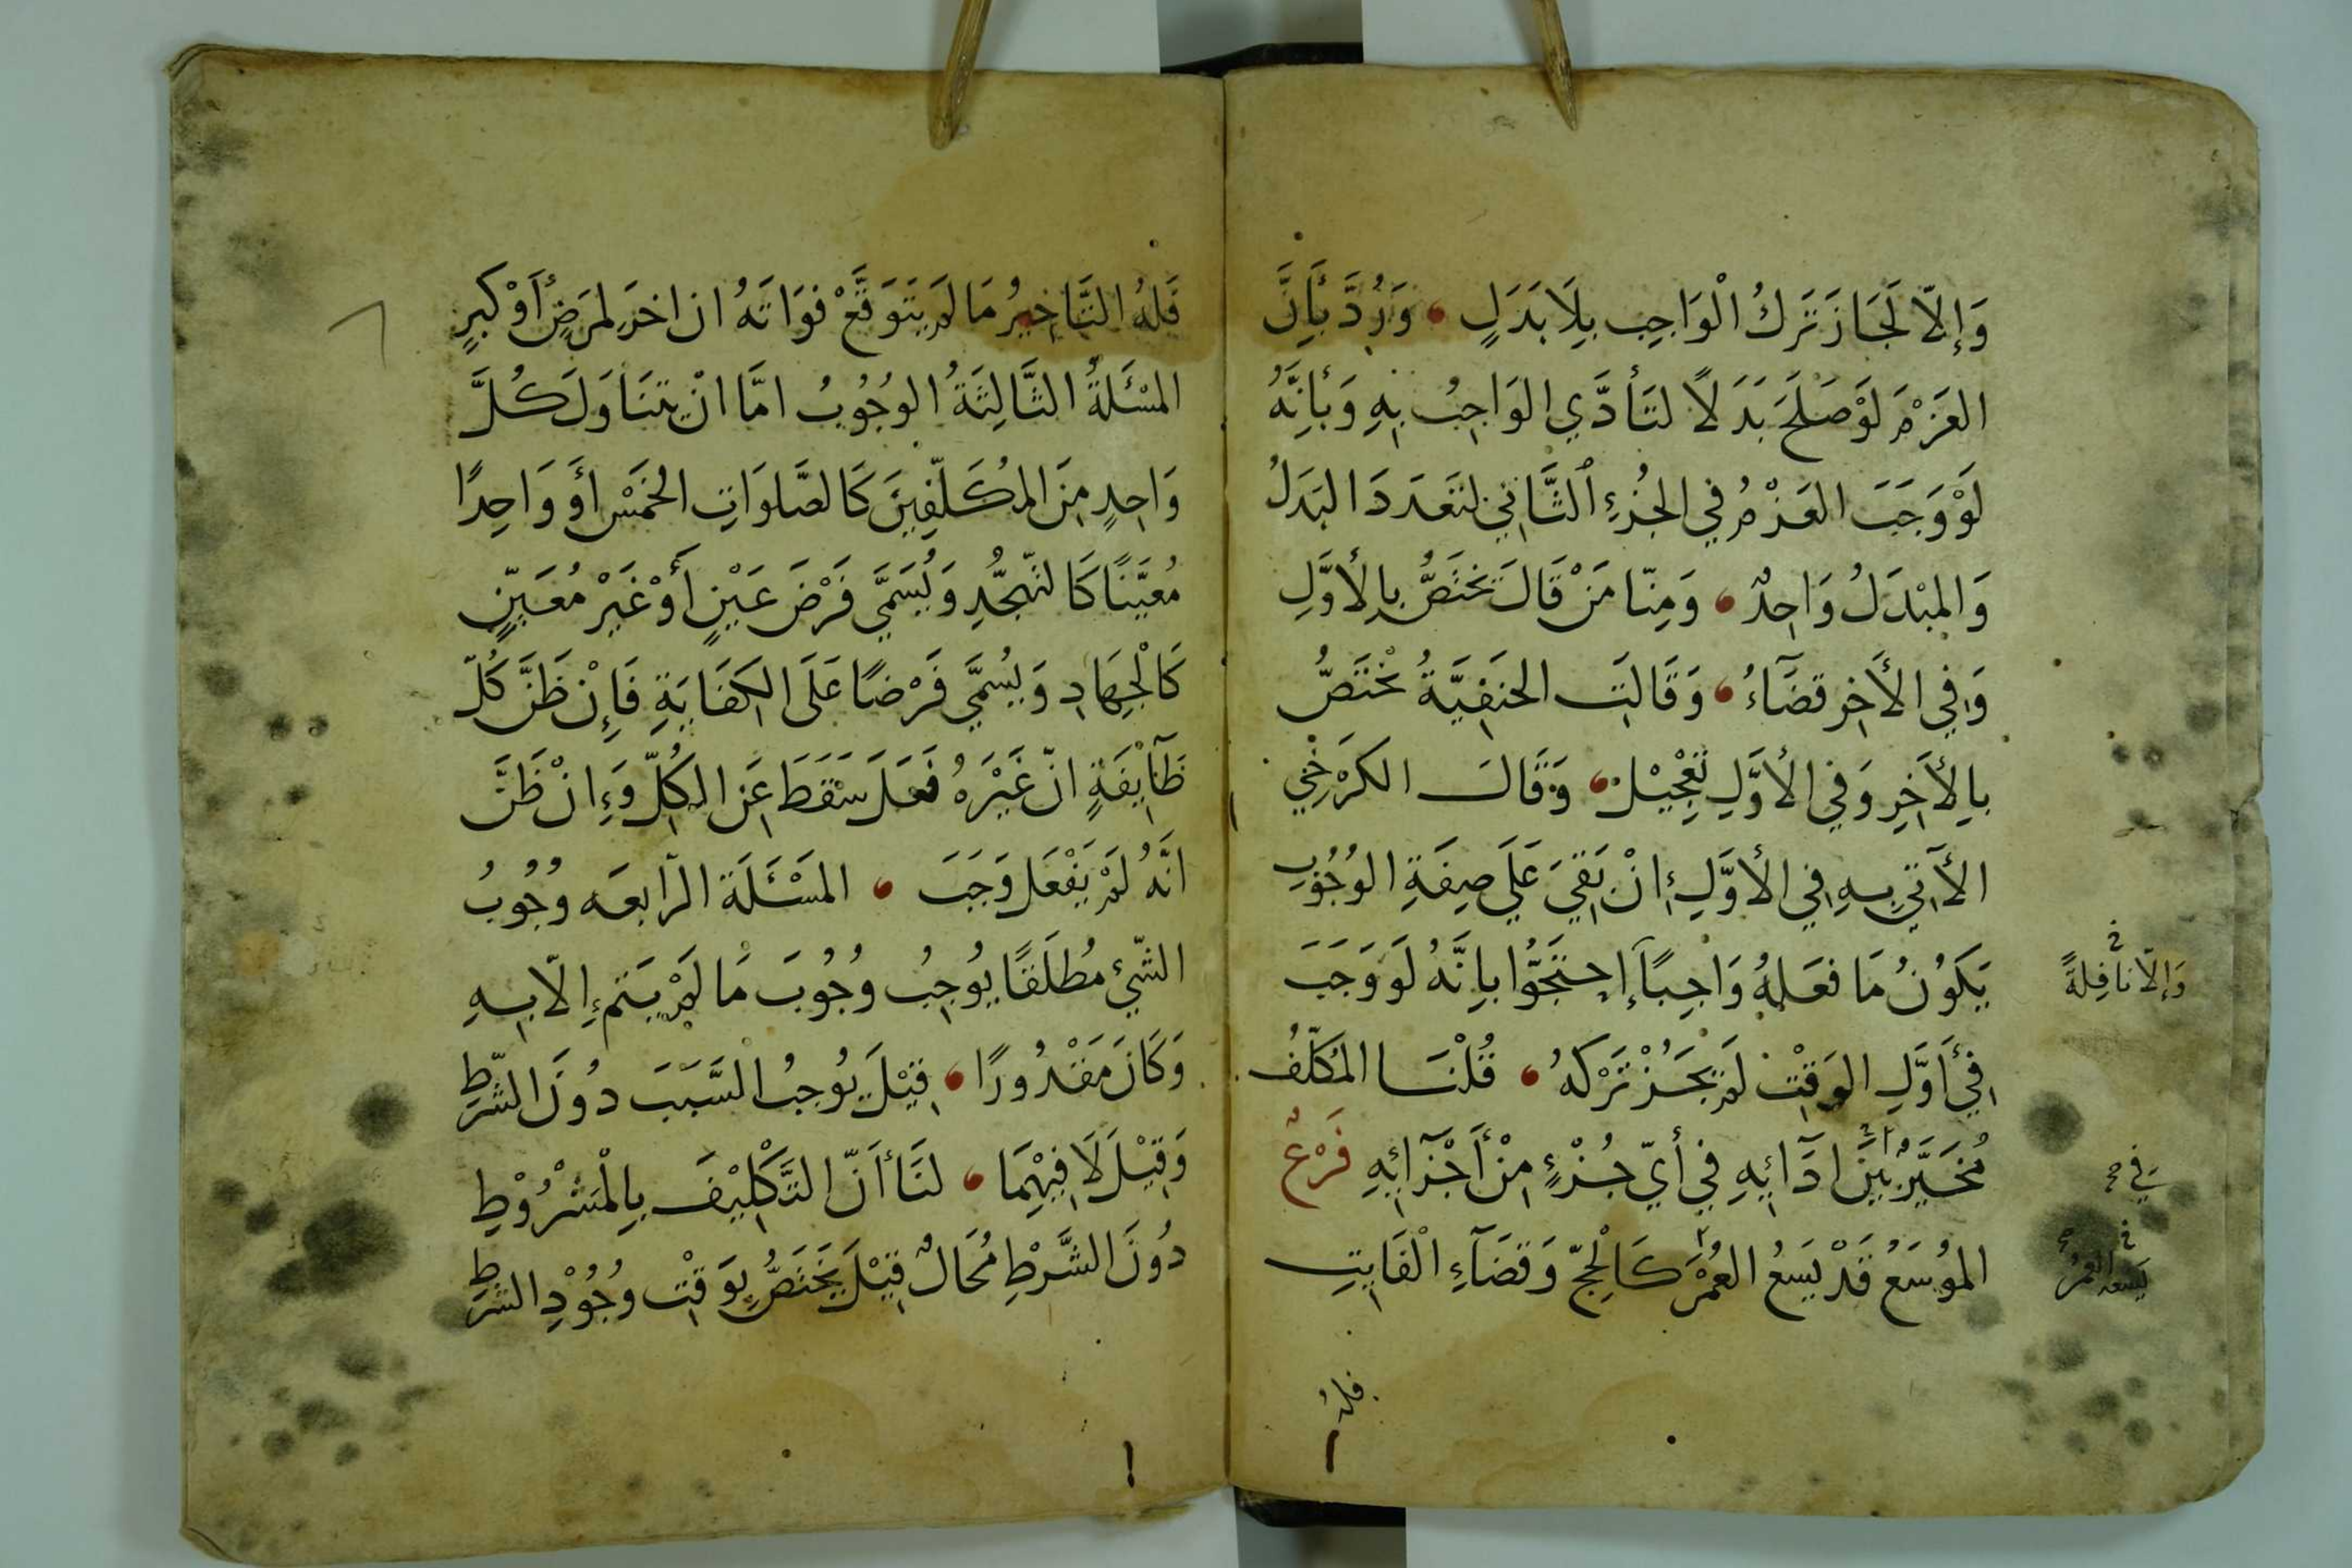 وَإِلّا لَجَازَ تَرَكُ الْوَاجِبِ بِلَا بَدَلٍ وَرُدَّ بِأَنَّ
العَزْمَ لَوْ صَلَحَ بَدَلًا لتَأَدَّي الوَاجِبُ بِهِ وَبأنَّهُ
لَوْ وَجَبَ العَزْمُ فِي الجُزْءِ الثَّانِي لتعَدَدَ البَدَلُ
وَالمبْدَلُ وَاحِدٌ وَمِنّا مَنْ قَالَ تَختَصُّ بِالأوَّلِ
وَفِي الأَخِرِ قضَآءُ وَقَالَتِ الحنَفِيَّةُ تخْتَصُّ
بِالأَخِرِ وَفِي الأوَّلِ تَعْجِيْل وَقَالَ الكَرْخِي
الأَتِي بِهِ فِي الأوَّلِ إنْ بَقِيَ عَلَي صِفَةِ الوُجُوبِ
يَكَوُنُ مَا فعَلهُ وَاجِبًا إحتَجَوُّا بانَّهُ لَوَ وَجَبَ
وَإلّا نافِلةً
فِي أَوَّلِ الوَقْتِ لَمْ يَجُزْ تَرْكهُ قُلْنَا المُكَلّفُ
مُخَيَّرٌ بَيْنَ ادَآئِهِ فِي أيّ جُزْءٍ مِنْ أَجْزَآئِهِ فَرْعٌ
في
الموُسَعُ قَدْ يَسَعُ العُمْرَ كَالْحِجّ وَقضَآءِ الْفَايتِ
يَسَعه العمُرُ
فلهُ
فَلهُ التَّاخِيرُ مَا لم يَتَوَقَّعْ فوَاتَهُ ان اخرَ لمَرَضٍ أَوْ كبرٍ
المسْئَلةُ الثَّالِثَةُ الوُجُوبُ امَّا انْ يتنَاوَلَ كُلَّ
وَاحِدٍ مِنَ المُكَلّفِينَ كَالصَّلوَاتِ الخمَسْ أَوْ وَاحِدًا
مُعيَّنًا كَالتهجُّدِ وَيُسَمَّي فَرْضَ عَيْنٍ أَوْ غَيْرَ مُعَيّنٍ
كَالْجِهَادِ وَيُسمَّي فَرْضًا عَلَى الكفَايَةِ فَإِنْ ظَنَّ كُلّ
طَآيْفَةٍ انّ غَيْرَهُ فَعَلَ سَقَطَ عَنِ الكُلِّ وَإِنْ ظَنَّ
انَّهُ لَمْ يَفْعَل وَجَبَ المَسْئَلَة الرّابعَه وُجُوبُ
الشّيْء مُطلَقًا يُوجِبُ وُجُوبَ مَا لَمْ يتم إلّا بِهِ
وَكَانَ مَقْدُورًا قِيْلَ يُوجبُ السَّبَبَ دُونَ الشّرطِ
وَقِيْلَ لَا فِيْهِمَا لنَا أَنّ التَّكْلِيْفَ بِالْمَشْرُوْطِ
دُونَ الشَّرْطِ مُحَالٌ قِيْلَ يَخَتَصُّ بِوَقْتِ وُجُوْدِ الشرطِ